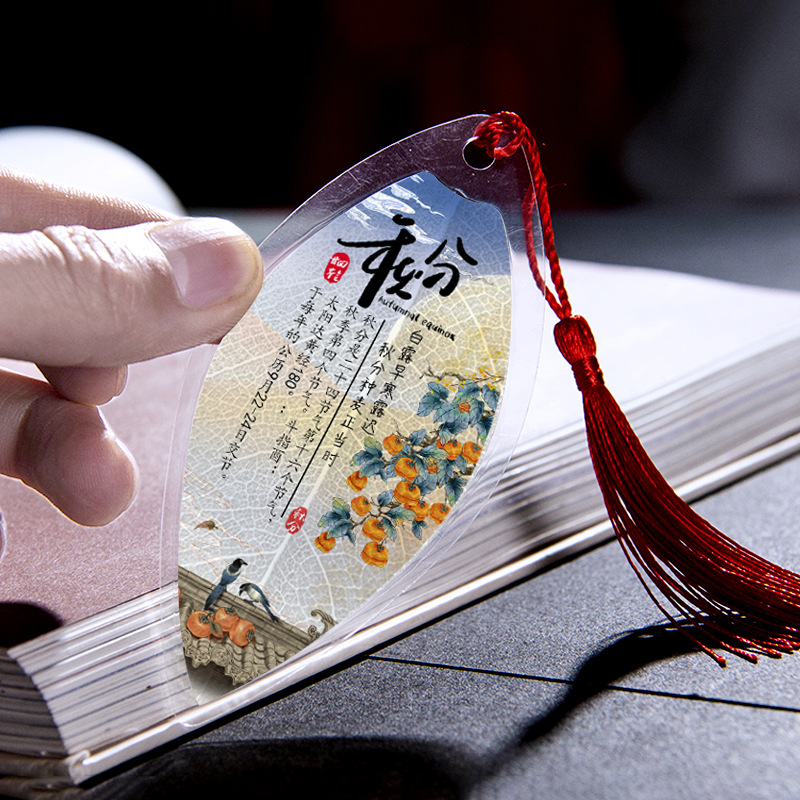 秋分
Autumnal equinox
白露早寒露迟
秋分种麦正当时
秋分是二十四节气第十六个节气，
秋季第四个节气。
太阳达黄经180°；斗指酉；
于每年的公历9月22-24日交节。